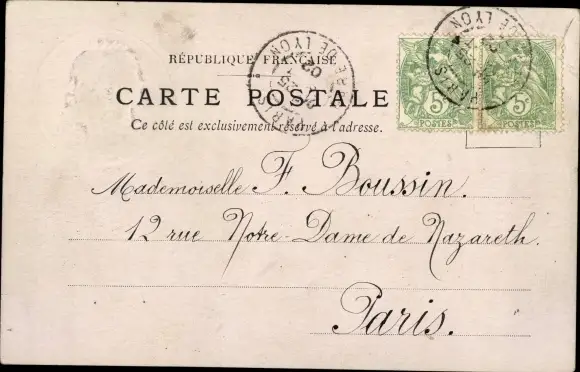 RÉPUBLIQUE FRANÇAISE
CARTE POSTALE
Ce côté est exclusivement réservé à l'adresse.
PARIS
RE DE LYON
02
25
5c
POSTES
PARIS
DE LYON
5c
POSTES
Mademoiselle F. Boussin.
12 rue Notre-Dame de Nazareth.
Paris.